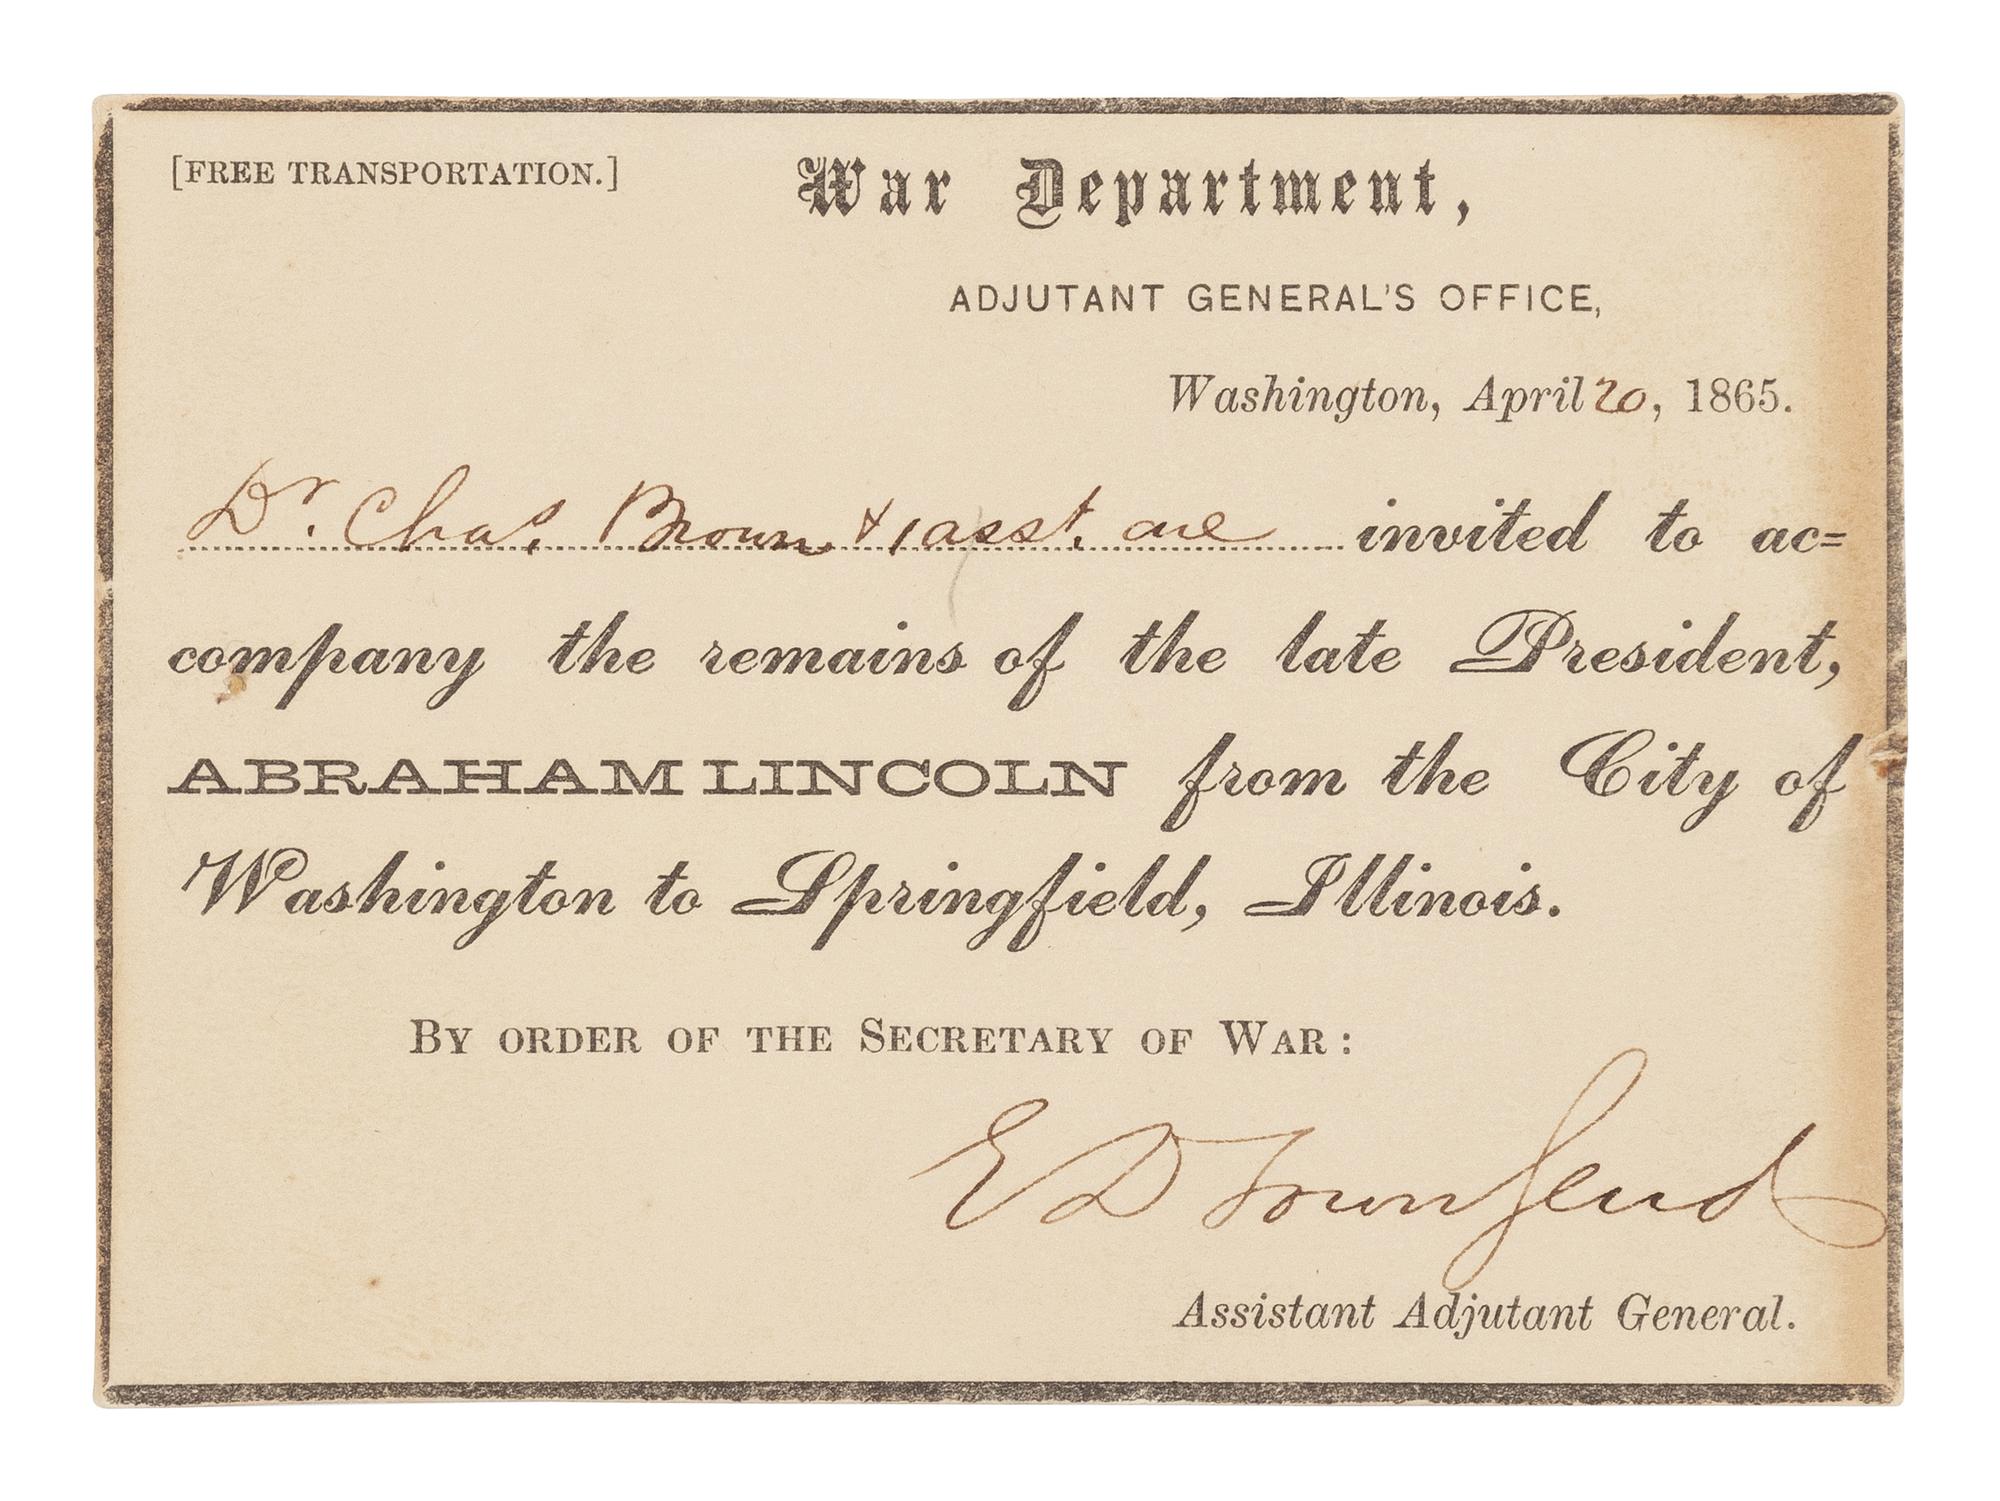 [FREE TRANSPORTATION.]
War Department,
ADJUTANT GENERAL'S OFFICE,
Washington, April 20, 1865.
Dr. Chas. Brown & 1 asst. are invited to ac=
company the remains of the late President,
ABRAHAM LINCOLN from the City of
Washington to Springfield, Illinois.
BY ORDER OF THE SECRETARY OF WAR:
E D Townsend
Assistant Adjutant General.